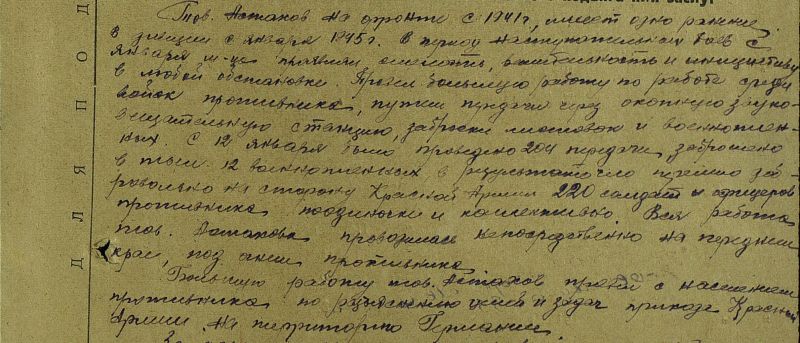 Тов. Астахов на фронте с 1941г., имеет одно ранение.
В дивизии с января 1945г. В период наступательных боев с
января м-ца проявил смелость, решительность и инициативу
в любой обстановке. Провел большую работу по работе среди
войск противника, путем передачи через окопную звуко-
вещательную станцию, заброски листовок и военноплен-
ных. С 12 января было проведено 204 передачи, заброшено
в тыл 12 военнопленных в результате чего перешло до-
бровольно на сторону Красной Армии 220 солдат и офицеров
противника поодиночке и коллективно. Вся работа
тов. Астахова проводилась непосредственно на переднем
крае, под огнем противника.
Большую работу тов. Астахов провел с населением
противника по разъяснению целей и задач прихода Красной
Армии на территорию Германии.
Д Л Я П О Д